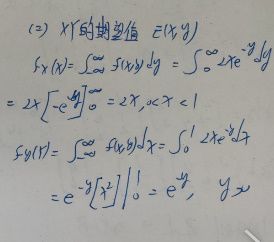 (二) XY的期望值 E(X,Y)
fx(x)=∫_{-∞}^{∞} f(x,y)dy = ∫_0^∞ 2xe^{-y}dy
= 2x[-e^{-y}]_0^∞ = 2x, 0<x<1
fy(Y)=∫_{-∞}^{∞} f(x,y)dx = ∫_0^1 2xe^{-y}dx
= e^{-y}[x²]|_0^1 = e^{-y},